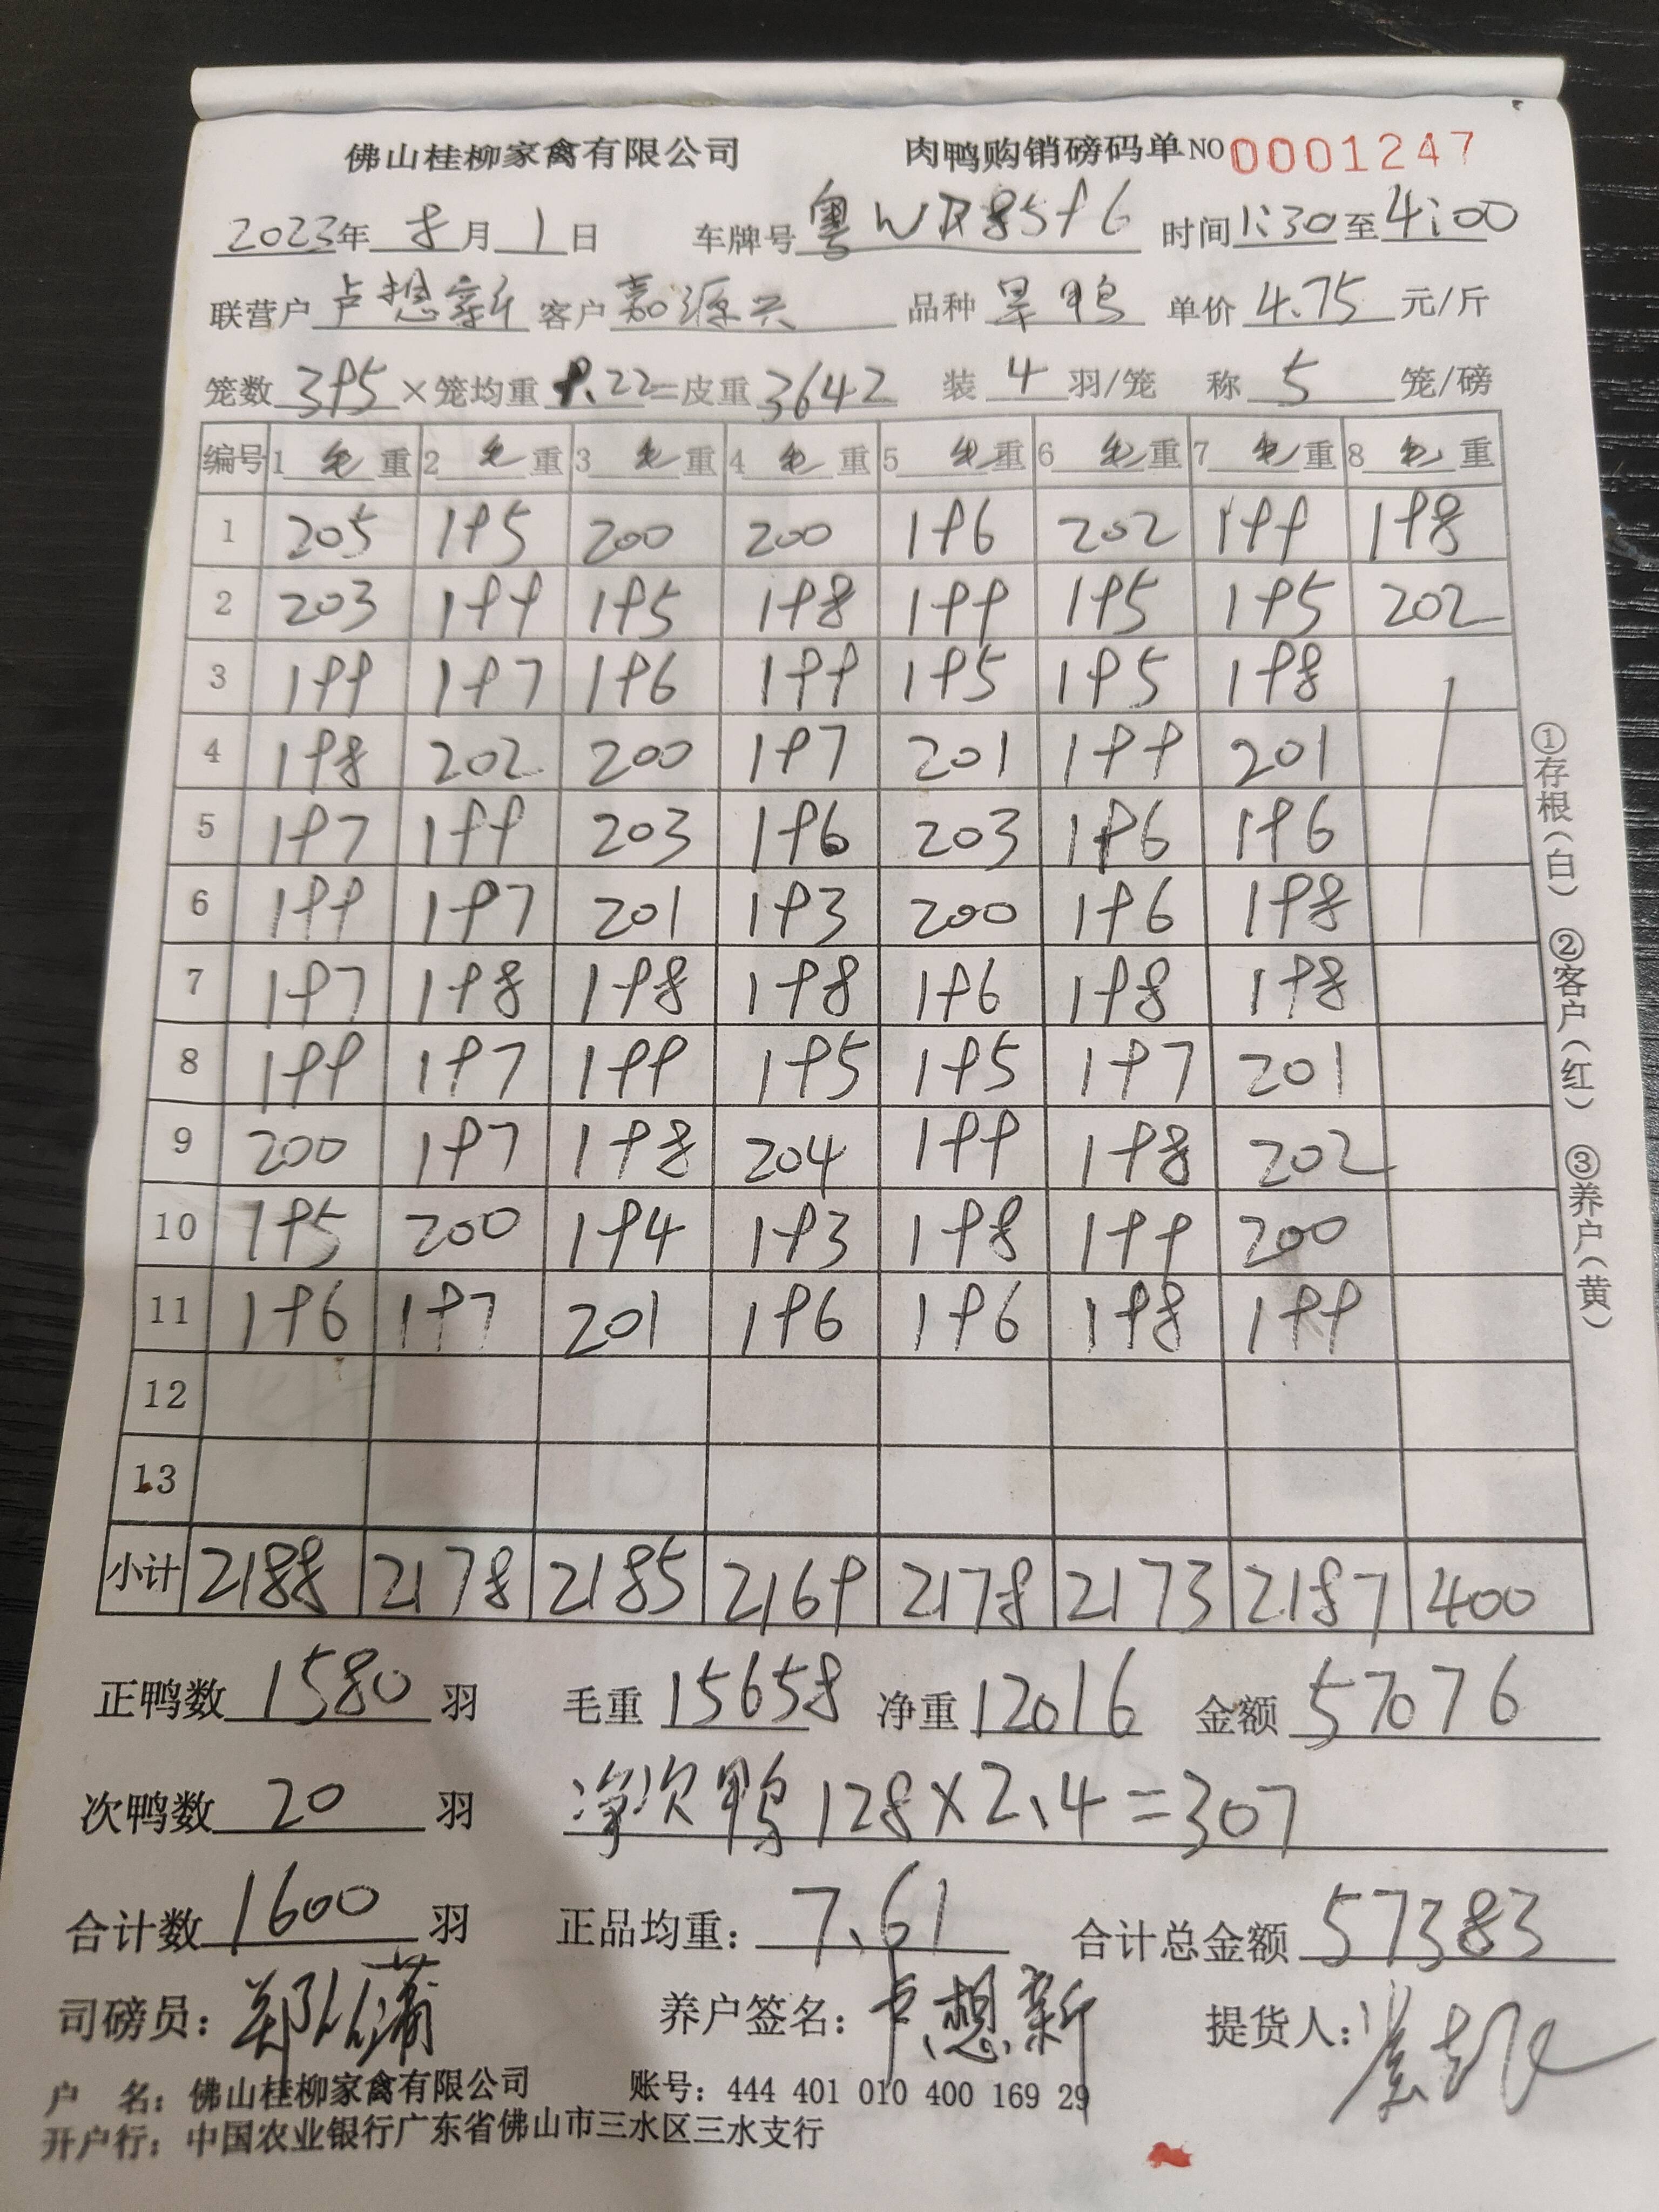 佛山桂柳家禽有限公司 肉鸭购销磅码单 NO 0001247
2023年 8月 1日 车牌号 粤WR8596 时间 1:30 至 4:00
联营户 卢想新 客户 嘉源兴 品种 旱鸭 单价 4.75 元/斤
笼数 395 ×笼均重 9.22 =皮重 3642 装 4 羽/笼 称 5 笼/磅
编号 1 毛 重 2 毛 重 3 毛 重 4 毛 重 5 毛 重 6 毛 重 7 毛 重 8 毛 重
1 205 195 200 200 196 202 199 198
2 203 199 195 198 199 195 195 202
3 199 197 196 199 195 195 198
4 198 202 200 197 201 199 201
5 197 199 203 196 203 196 196
6 199 197 201 193 200 196 198
7 197 198 198 198 196 198 198
8 199 197 199 195 195 197 201
9 200 197 198 204 199 198 202
10 195 200 194 193 198 199 200
11 196 197 201 196 196 198 199
12
13
小计 2188 2178 2185 2169 2178 2173 2187 400
正鸭数 1580 羽 毛重 15658 净重 12016 金额 57076
次鸭数 20 羽 净次鸭 128×2.4=307
合计数 1600 羽 正品均重: 7.61 合计总金额 57383
司磅员: 郑 养户签名: 卢想新 提货人:
户 名: 佛山桂柳家禽有限公司 账号: 444 401 010 400 169 29
开户行: 中国农业银行广东省佛山市三水区三水支行
①存根(白) ②客户(红) ③养户(黄)